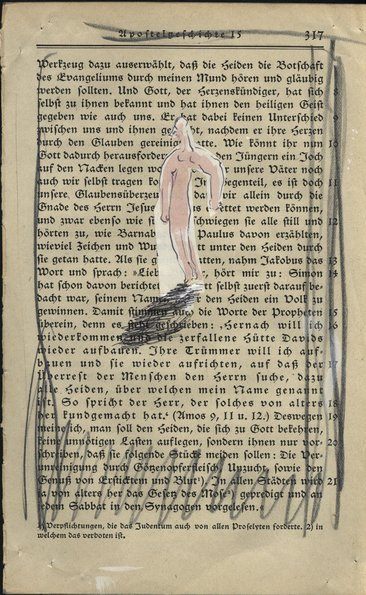 Apostelgeschichte 15 317
Werkzeug dazu auserwählt, daß die Heiden die Botschaft
des Evangeliums durch meinen Mund hören und gläubig
werden sollten. Und Gott, der Herzenskündiger, hat sich 8
selbst zu ihnen bekannt und hat ihnen den heiligen Geist
gegeben wie auch uns. Er hat dabei keinen Unterschied 9
zwischen uns und ihnen nachdem er ihre Herzen
durch den Glauben gereinigt hatte. Wie könnt ihr nun 10
Gott dadurch herausfordern Jüngern ein Joch
auf den Nacken legen unsere Väter noch
auch wir selbst tragen Im Gegenteil, es ist doch 11
unsere Glaubensüberzeu wir allein durch die
Gnade des Herrn Jesus gerettet werden können,
und zwar ebenso wie sie schwiegen sie alle still und 12
hörten zu, wie Barnabas Paulus davon erzählten,
wieviel Zeichen und Wun Gott unter den Heiden durch
sie getan hatte. Als sie hatten, nahm Jakobus das 13
Wort und sprach: »Liebe hört mir zu: Simon 14
hat schon davon berichtet selbst zuerst darauf be-
dacht war, seinem Namen den Heiden ein Volk zu
gewinnen. Damit stimmen auch die Worte der Propheten 15
überein, denn es steht geschrieben: ‚Hernach will ich 16
wiederkommen und die zerfallene Hütte Davids
wieder aufbauen. Ihre Trümmer will ich auf-
bauen und sie wieder aufrichten, auf daß der 17
Überrest der Menschen den Herrn suche, dazu
alle Heiden, über welchen mein Name genannt
ist. So spricht der Herr, der solches von alters 18
her kundgemacht hat.‘ (Amos 9, 11 u. 12.) Deswegen 19
meine ich, man soll den Heiden, die sich zu Gott bekehren,
keine unnötigen Lasten auflegen, sondern ihnen nur vor- 20
schreiben, daß sie folgende Stücke meiden sollen: Die Ver-
unreinigung durch Götzenopferfleisch, Unzucht, sowie den
Genuß von Ersticktem und Blut¹) In allen Städten wird 21
ja von alters her das Gesetz des Mose²) gepredigt und an
jedem Sabbat in den Synagogen vorgelesen.«
1) Verpflichtungen, die das Judentum auch von allen Proselyten forderte. 2) in
welchem das verboten ist.